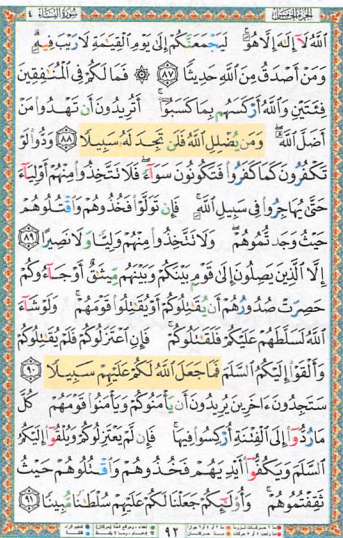 الجزء الخامس سورة النساء ٤
ٱللَّهُ لَآ إِلَٰهَ إِلَّا هُوَۚ لَيَجْمَعَنَّكُمْ إِلَىٰ يَوْمِ ٱلْقِيَٰمَةِ لَا رَيْبَ فِيهِۗ
وَمَنْ أَصْدَقُ مِنَ ٱللَّهِ حَدِيثًا ٨٧ ۞ فَمَا لَكُمْ فِى ٱلْمُنَٰفِقِينَ
فِئَتَيْنِ وَٱللَّهُ أَرْكَسَهُم بِمَا كَسَبُوٓا۟ۚ أَتُرِيدُونَ أَن تَهْدُوا۟ مَنْ
أَضَلَّ ٱللَّهُۖ وَمَن يُضْلِلِ ٱللَّهُ فَلَن تَجِدَ لَهُۥ سَبِيلًا ٨٨ وَدُّوا۟ لَوْ
تَكْفُرُونَ كَمَا كَفَرُوا۟ فَتَكُونُونَ سَوَآءًۖ فَلَا تَتَّخِذُوا۟ مِنْهُمْ أَوْلِيَآءَ
حَتَّىٰ يُهَاجِرُوا۟ فِى سَبِيلِ ٱللَّهِۚ فَإِن تَوَلَّوْا۟ فَخُذُوهُمْ وَٱقْتُلُوهُمْ
حَيْثُ وَجَدتُّمُوهُمْۖ وَلَا تَتَّخِذُوا۟ مِنْهُمْ وَلِيًّا وَلَا نَصِيرًا ٨٩
إِلَّا ٱلَّذِينَ يَصِلُونَ إِلَىٰ قَوْمٍۭ بَيْنَكُمْ وَبَيْنَهُم مِّيثَٰقٌ أَوْ جَآءُوكُمْ
حَصِرَتْ صُدُورُهُمْ أَن يُقَٰتِلُوكُمْ أَوْ يُقَٰتِلُوا۟ قَوْمَهُمْۚ وَلَوْ شَآءَ
ٱللَّهُ لَسَلَّطَهُمْ عَلَيْكُمْ فَلَقَٰتَلُوكُمْۚ فَإِنِ ٱعْتَزَلُوكُمْ فَلَمْ يُقَٰتِلُوكُمْ
وَأَلْقَوْا۟ إِلَيْكُمُ ٱلسَّلَمَ فَمَا جَعَلَ ٱللَّهُ لَكُمْ عَلَيْهِمْ سَبِيلًا ٩٠
سَتَجِدُونَ ءَاخَرِينَ يُرِيدُونَ أَن يَأْمَنُوكُمْ وَيَأْمَنُوا۟ قَوْمَهُمْ كُلَّ
مَا رُدُّوٓا۟ إِلَى ٱلْفِتْنَةِ أُرْكِسُوا۟ فِيهَاۚ فَإِن لَّمْ يَعْتَزِلُوكُمْ وَيُلْقُوٓا۟ إِلَيْكُمُ
ٱلسَّلَمَ وَيَكُفُّوٓا۟ أَيْدِيَهُمْ فَخُذُوهُمْ وَٱقْتُلُوهُمْ حَيْثُ
ثَقِفْتُمُوهُمْۚ وَأُو۟لَٰٓئِكُمْ جَعَلْنَا لَكُمْ عَلَيْهِمْ سُلْطَٰنًا مُّبِينًا ٩١
٩٢